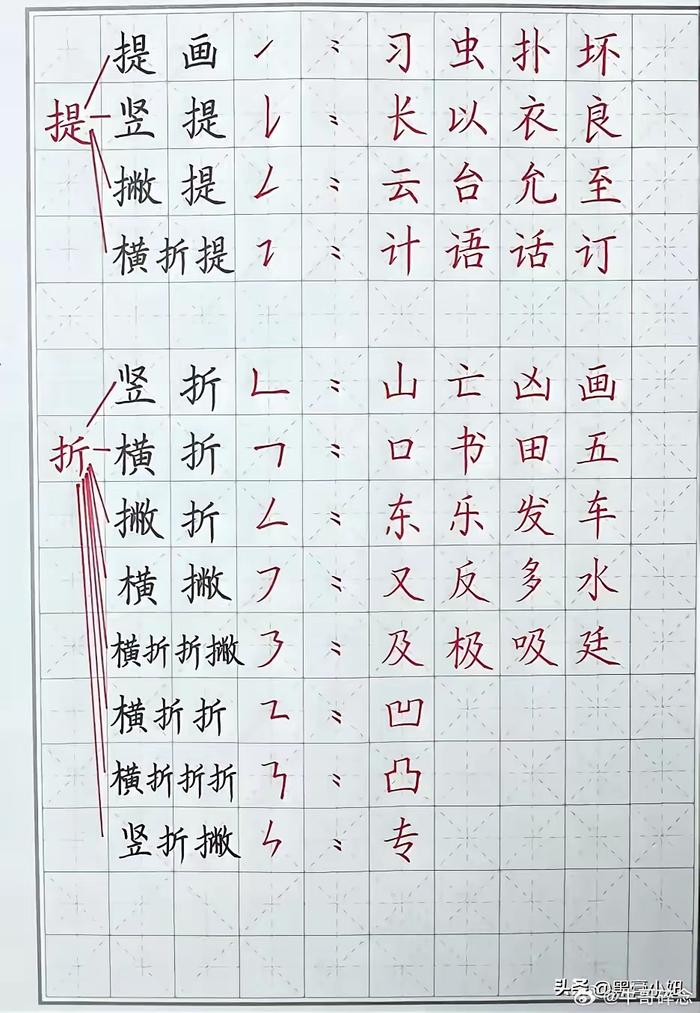 提画㇀：习虫扑坏
提
竖提𠄌：长以衣良
撇提𠃋：云台允至
横折提㇊：计语话订
竖折𠃊：山亡凶画
折
横折𠃍：口书田五
撇折𠃋：东乐发车
横撇㇇：又反多水
横折折撇㇋：及极吸廷
横折折㇅：凹
横折折折㇎：凸
竖折撇ㄣ：专
头条@墨
半哥碎念